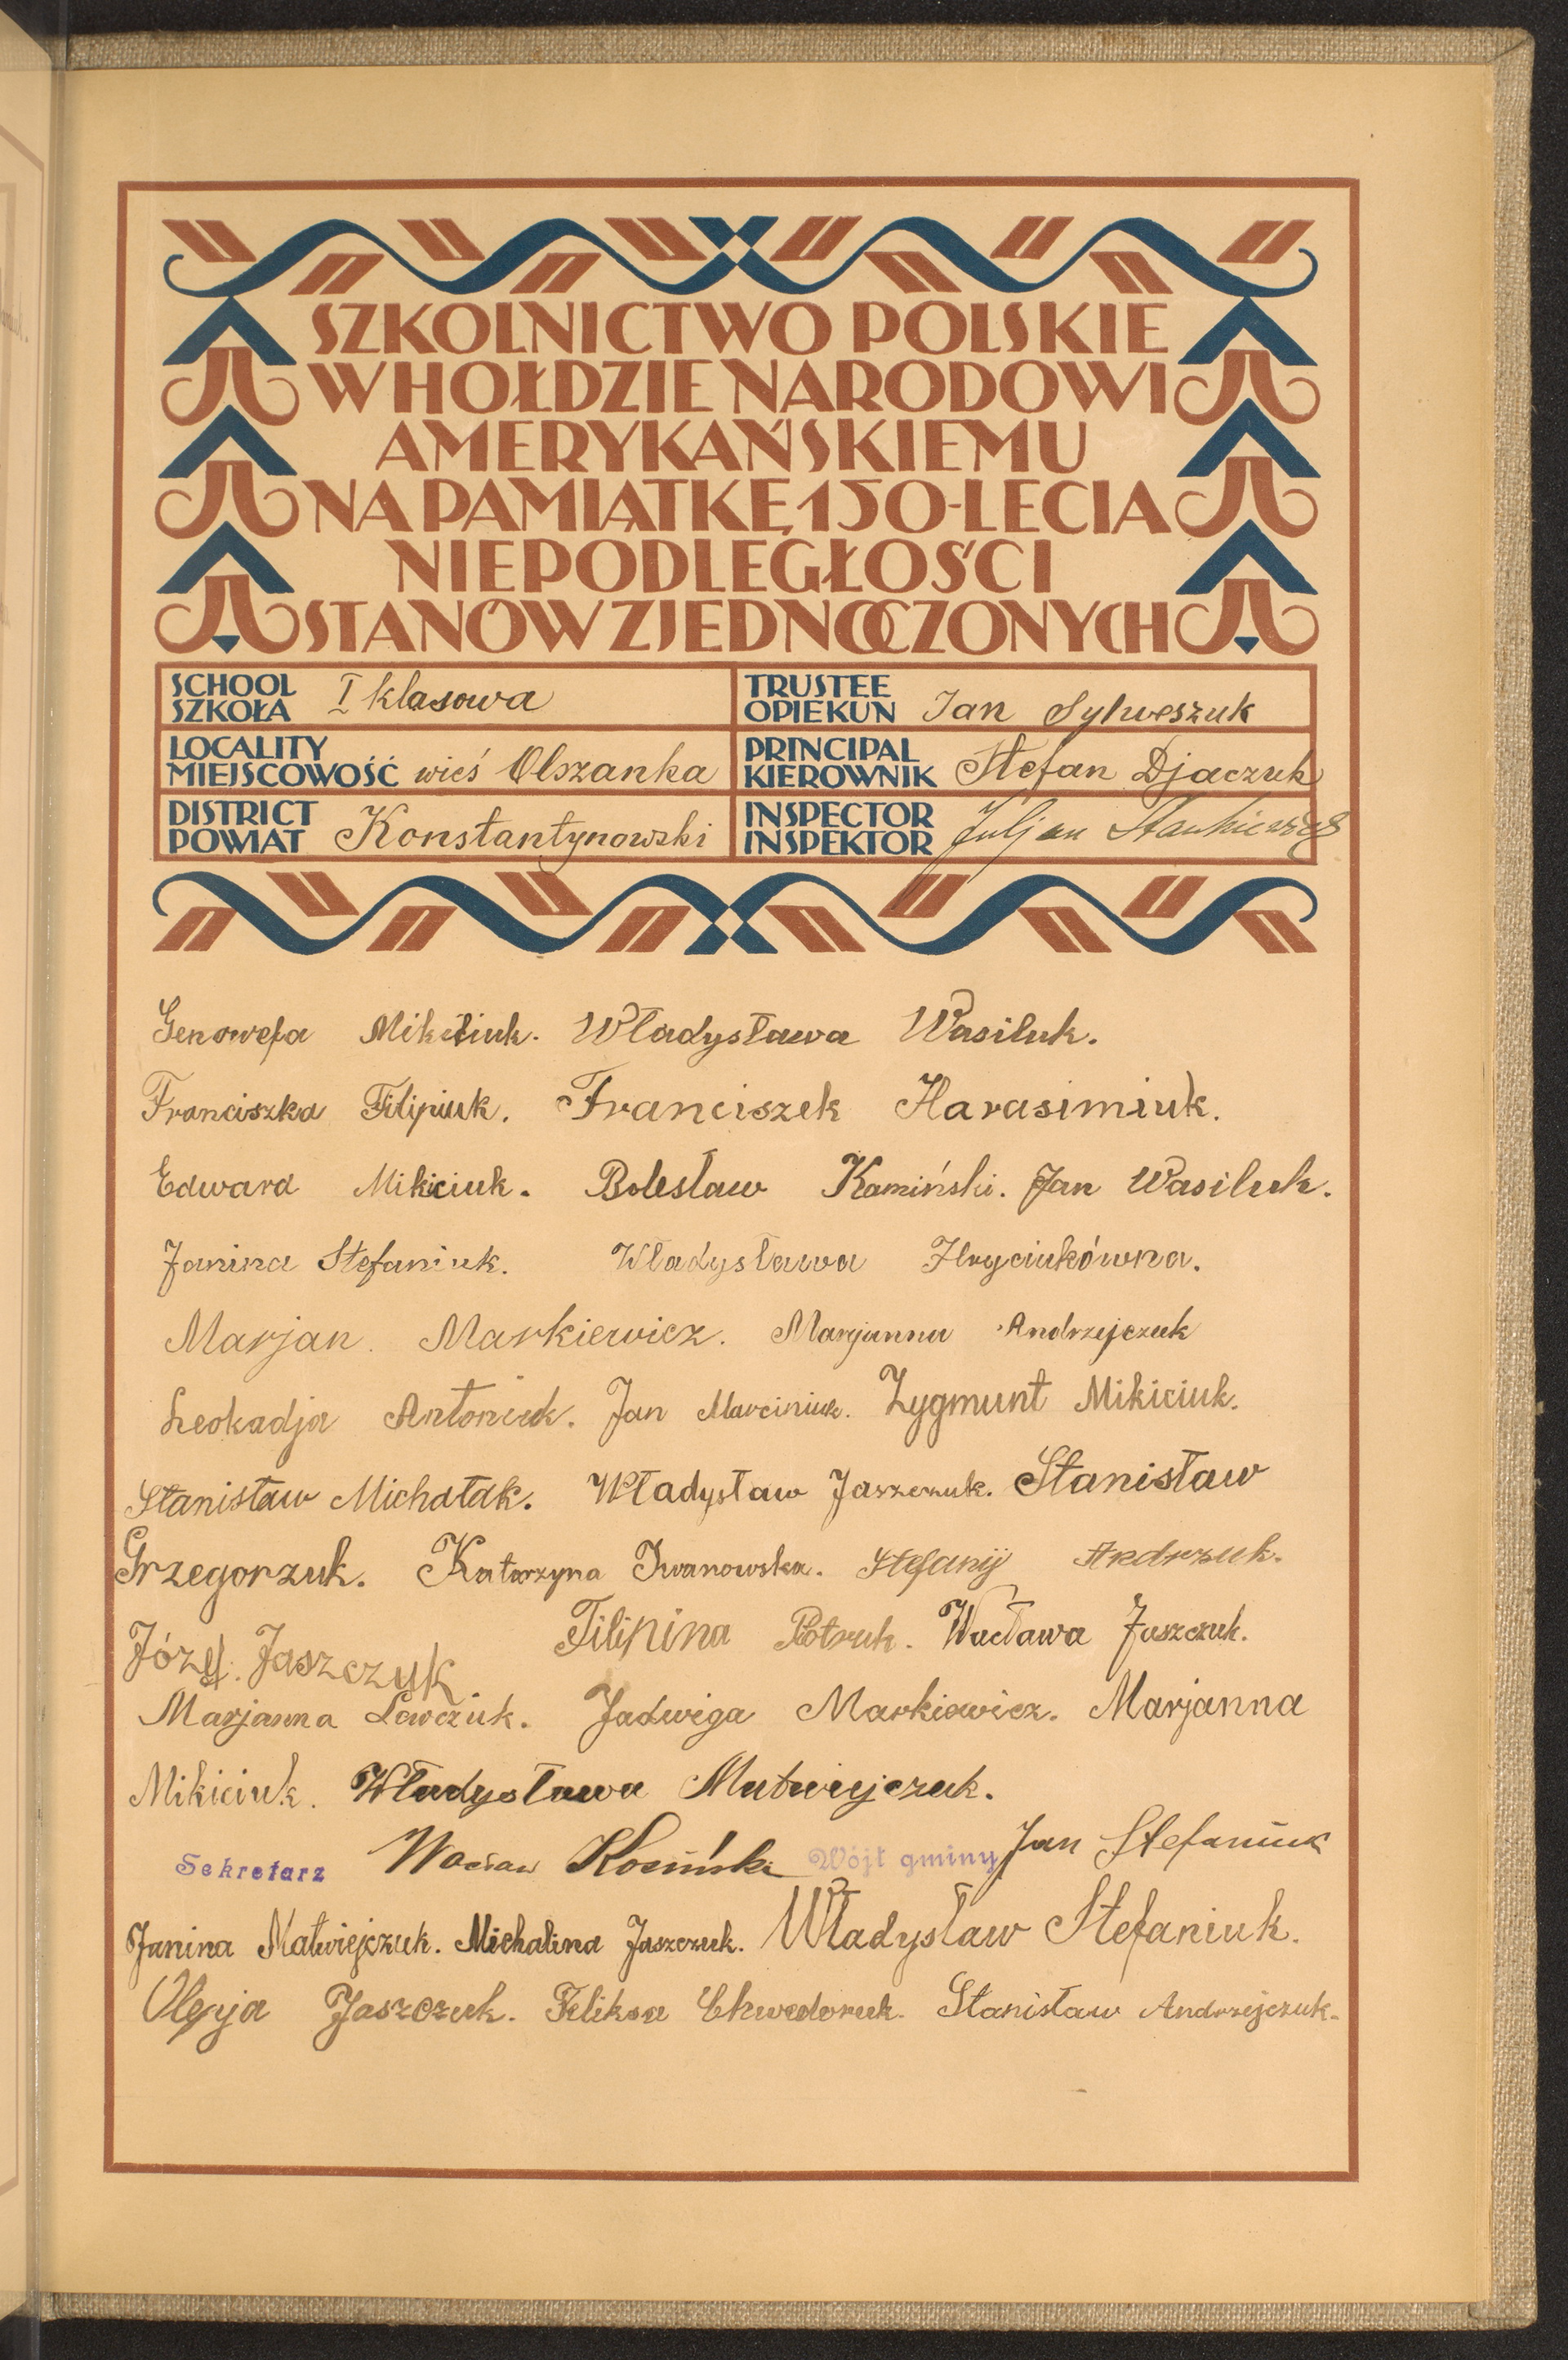 SZKOLNICTWO POLSKIE
W HOŁDZIE NARODOWI
AMERYKAŃSKIEMU
NA PAMIĄTKĘ 150-LECIA
NIEPODLEGŁOŚCI
STANÓW ZJEDNOCZONYCH
SCHOOL SZKOŁA I klasowa
TRUSTEE OPIEKUN Jan Sylweszuk
LOCALITY MIEJSCOWOŚĆ wieś Olszanka
PRINCIPAL KIEROWNIK Stefan Djaczuk
DISTRICT POWIAT Konstantynowski
INSPECTOR INSPEKTOR Juljan Stankiewicz
Genowefa Mikiciuk. Władysława Wasiluk.
Franciszka Filipiuk. Franciszek Harasimiuk.
Edward Mikiciuk. Bolesław Kamiński. Jan Wasiluk.
Janina Stefaniuk. Władysława Hryciukówna.
Marjan Markiewicz. Marjanna Andrzejczuk
Leokadja Antoniuk. Jan Marciniuk. Zygmunt Mikiciuk.
Stanisław Michałak. Władysław Jaszczuk. Stanisław
Grzegorzuk. Katarzyna Iwanowska. Stefanij Andrzuk.
Józef. Jaszczuk. Filipina Potruk. Wacława Jaszczuk.
Marjanna Lewczuk. Jadwiga Markiewicz. Marjanna
Mikiciuk. Władysława Matwiejczuk.
Sekretarz Wacław Wójt gminy Jan Stefaniuk
Janina Matwiejczuk. Michalina Jaszczuk. Władysław Stefaniuk.
Jaszczuk. Feliksa Chwedoruk. Stanisław Andrzejczuk.